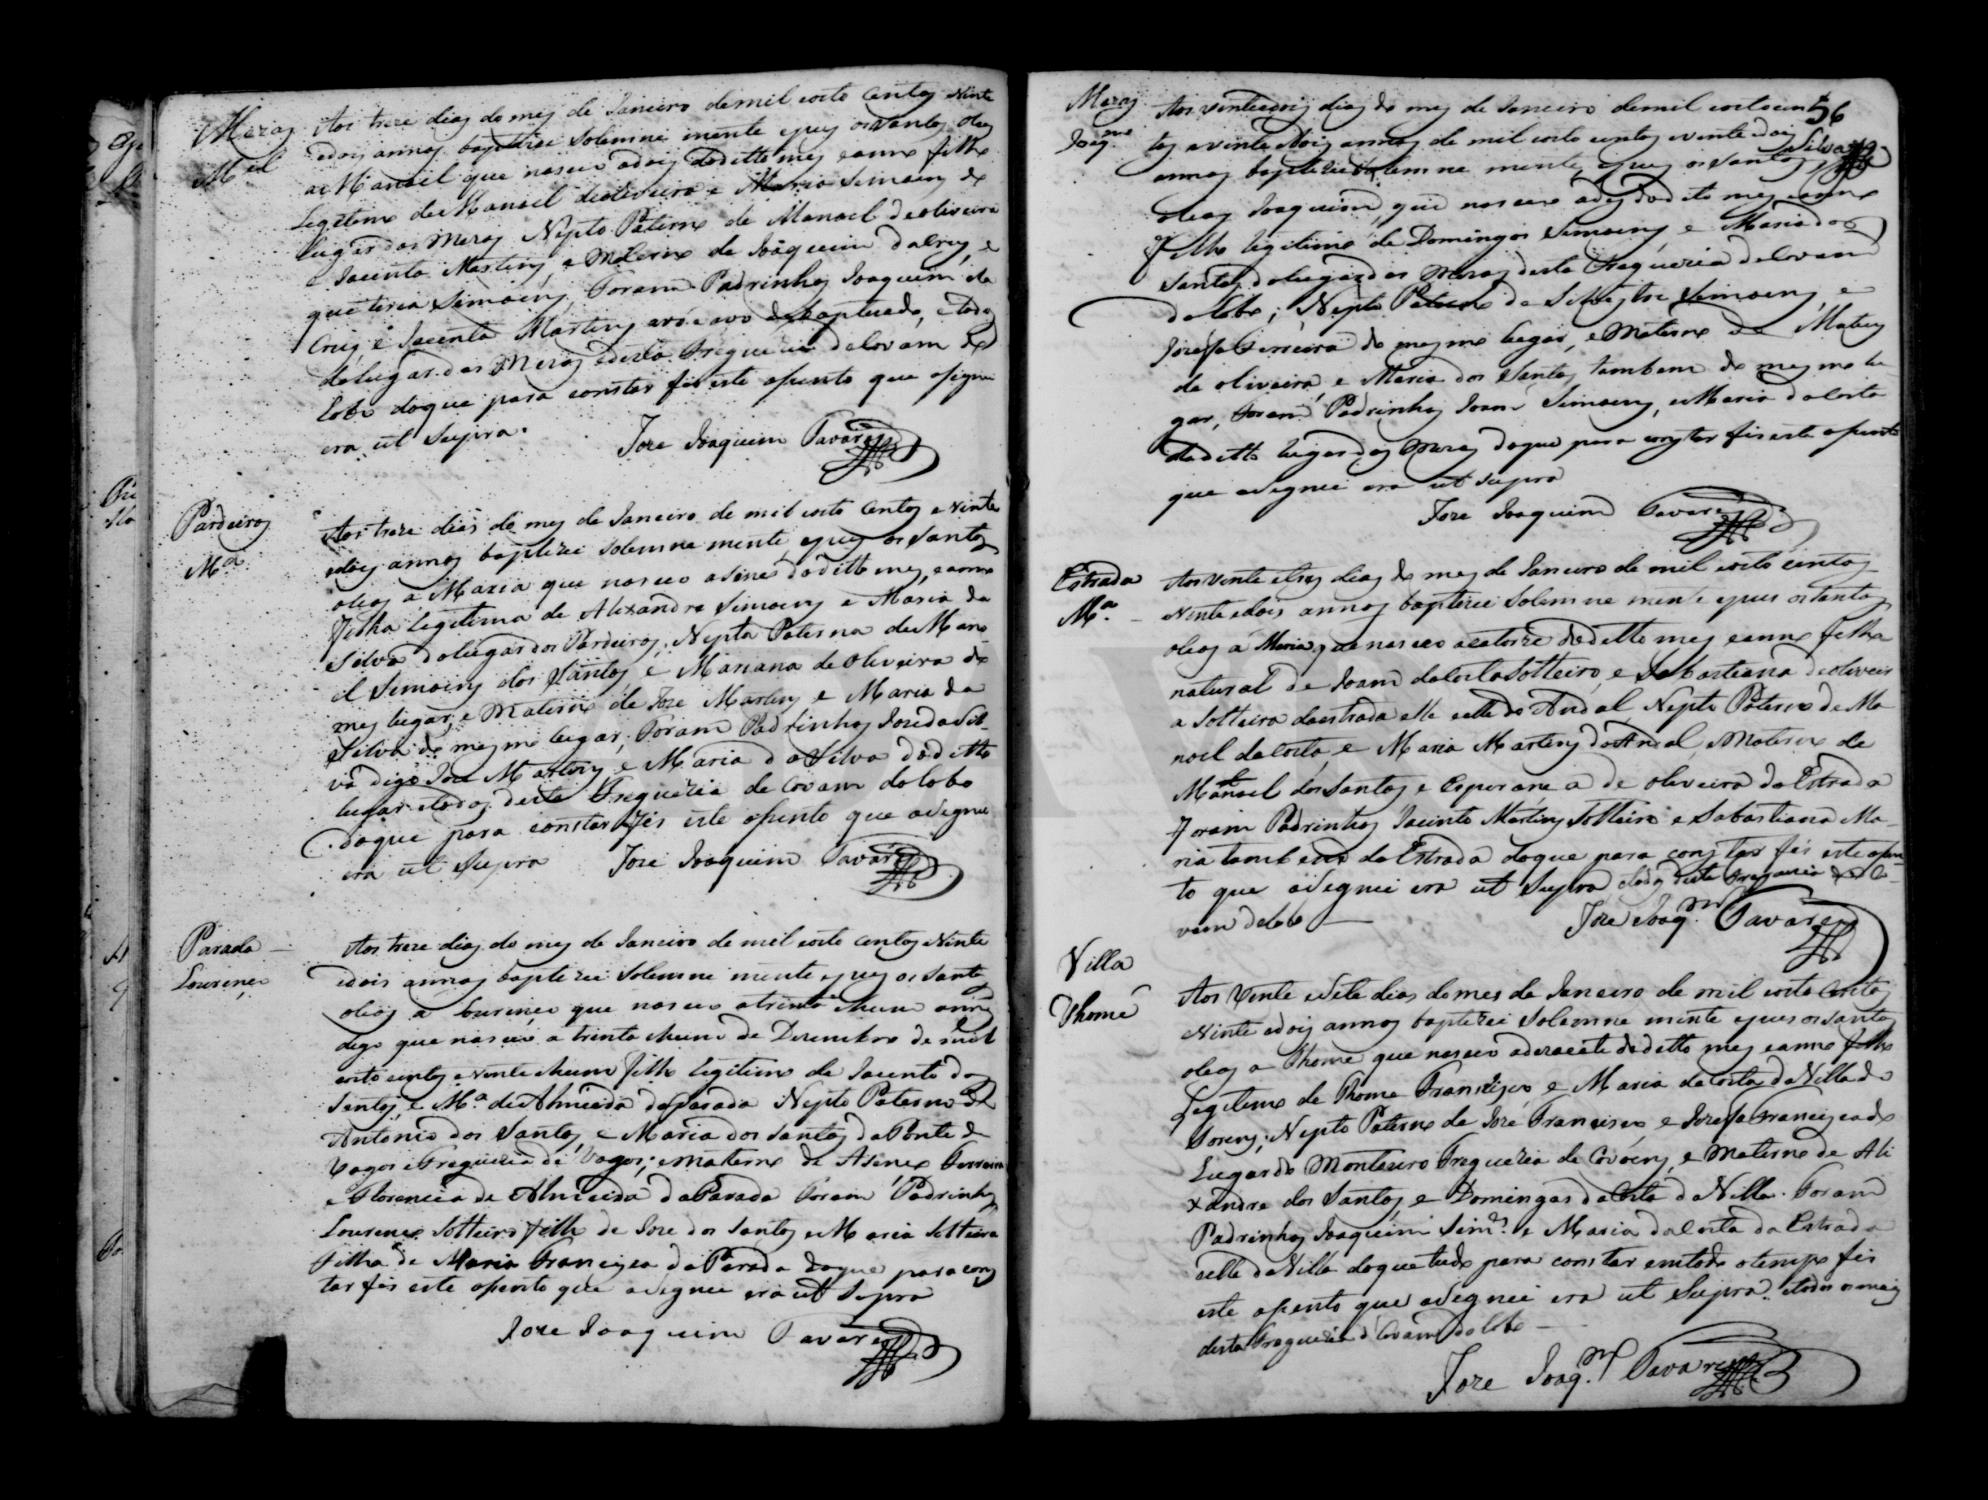 Mezas
Mel
Aos treze dias do mez de Janeiro de mil oito centos vinte
e dois annos baptizei solemne mente e puz os Santos oleos
a Manoel que nasceo a dois do ditto mez e anno filho
Legitimo de Manoel de oliveira e Maria Simoens do
lugar das Mezas Nepto Paterno de Manoel de oliveira
e Jacinta Martins, e Materno de Joaquim da Cruz, e
Simoens, Foram Padrinhos Joaquim da
Cruz, e Jacinta Martins avó e avo do baptizado, e todos
do lugar das Mezas desta Freguezia de Covam do
Lobo doque para constar fis este asento que asignei
era ut Supra.
Joze Joaquim Tavares
Pardeiros
Ma
Aos treze dias do mez de Janeiro de mil oito centos e vinte
e dois annos baptizei solemne mente, e puz os Santos
oleos a Maria que nasceo a sinco do ditto mez, e anno
filha legitima de Alexandre Simoens e Maria da
Silva do lugar dos Pardeiros, Nepta Paterna de Mano
el Simoens dos Santos e Mariana de Oliveira do
mes lugar, e Materna de Joze Martins e Maria da
Silva do mesmo lugar, Foram Padrinhos Joze da Sil-
va digo Joze Martins, e Maria da Silva do ditto
lugar e todos desta Freguezia de Covam do Lobo
doque para constar fis este asento que asignei
era ut Supra Joze Joaquim Tavares
Parada
Lourenço
Aos treze dias do mez de Janeiro de mil oito centos vinte
e dois annos baptizei solemne mente e puz os santos
oleos a Lourenço que nasceo a trinta e hum
digo que nasceo a trinta e hum de Dezembro de mil
oito centos e vinte e hum filho Legitimo de Jacinto dos
Santos, e Ma. de Almeida da Parada Nepto Paterno de
Antonio dos Santos, e Maria dos Santos da Ponte de
Vagos e Freguezia de Vagos; e materno de Ferreira
e Florencia de Almeida da Parada Foram Padrinhos
Lourenço Solteiro filho de Joze dos Santos e Maria Solteira
filha de Maria Francisca da Parada doque para cons
tar fis este asento que asignei era ut Supra
Joze Joaquim Tavares
56
Silva
Mezas
Joaqm.
Aos vinte e dois dias do mez de Janeiro de mil oito cen
tos e vinte e dois annos de mil oito centos e vinte e dois
annos baptizei solemne mente, e puz os Santos
oleos Joaquim, que nasceo a do ditto mez e anno
filho legitimo de Domingos Simoens, e Maria dos
Santos do lugar das Mezas desta Freguezia de Covam
do Lobo; Nepto Paterno de Silvestre Simoens, e
Jozefa Ferreira do mesmo lugar, e Materno de Mateus
de oliveira, e Maria dos Santos tambem do mesmo lu-
gar, Foram Padrinhos Joam Simoens, e Maria da Costa
do ditto lugar das Mezas doque para constar fis este asento
que asignei era ut supra
Joze Joaquim Tavares
Estrada
Ma.
Aos vinte e tres dias do mez de Janeiro de mil oito centos
vinte e dois annos baptizei solemne mente e puz os santos
oleos a Maria, que nasceo a catorze do ditto mez e anno filha
natural de Joam da Costa Solteiro, e Sebastiana de oliveir
a Solteira da estrada elle e elle do Andal, Nepto Paterno de Ma
noel da Costa, e Maria Martins do Andal, Materno de
Manoel dos Santos e Esperança de Oliveira da Estrada
Foram Padrinhos Jacinto Martins Solteiro e Sabastiana Ma-
ria tambem da Estrada doque para constar fis este asen-
to que asignei era ut Supra e todos desta Freguezia de Co-
vam do Lobo
Joze Joaqm. Tavares
Villa
Thomé
Aos Vinte e Sete dias do mes de Janeiro de mil oito centos
vinte e dois annos baptizei solemne mente e puz os santos
oleos a Thome que nasceo a dezaсete do ditto mez e anno filho
Legitimo de Thome Francisco, e Maria da Costa da Villa de
Sorens; Nepto Paterno de José Francisco, e Jozefa Francisca do
Lugar do Montouro Freguezia de Covoens, e Materno de Ali
xandre dos Santos, e Domingas da Costa da Villa. Foram
Padrinhos Joaquim Simõ. e Maria da Costa da Estrada
e elle da Villa doque tudo para constar em todo o tempo fis
este asento que asignei era ut Supra. e todos os mais
desta Freguezia de Covam do Lobo
Joze Joaqm. Tavares